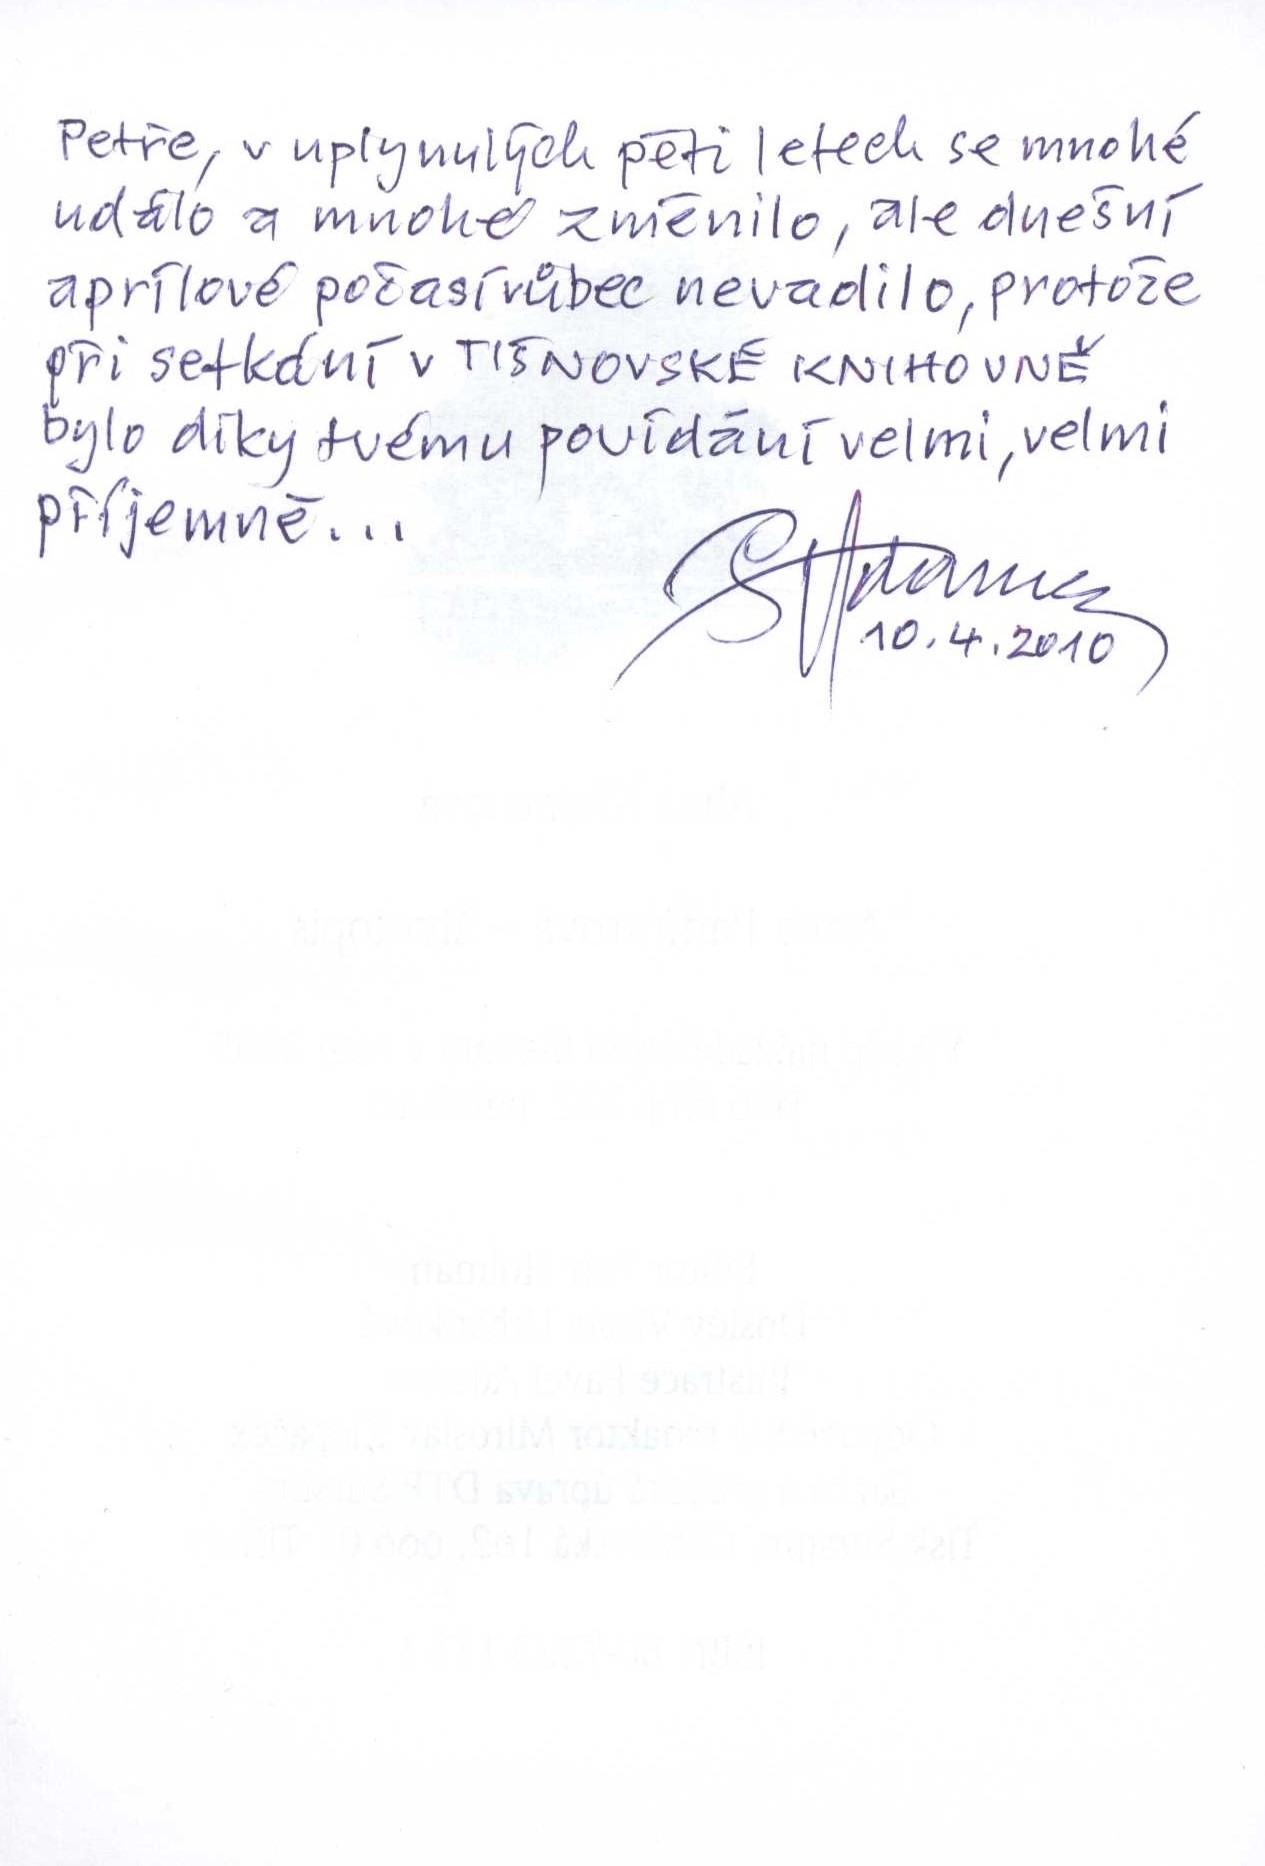 Petře, v uplynulých pěti letech se mnohé
událo a mnohé změnilo, ale dnešní
aprílové počasí vůbec nevadilo, protože
při setkání v TIŠNOVSKÉ KNIHOVNĚ
bylo díky tvému povídání velmi, velmi
příjemně...
10.4.2010